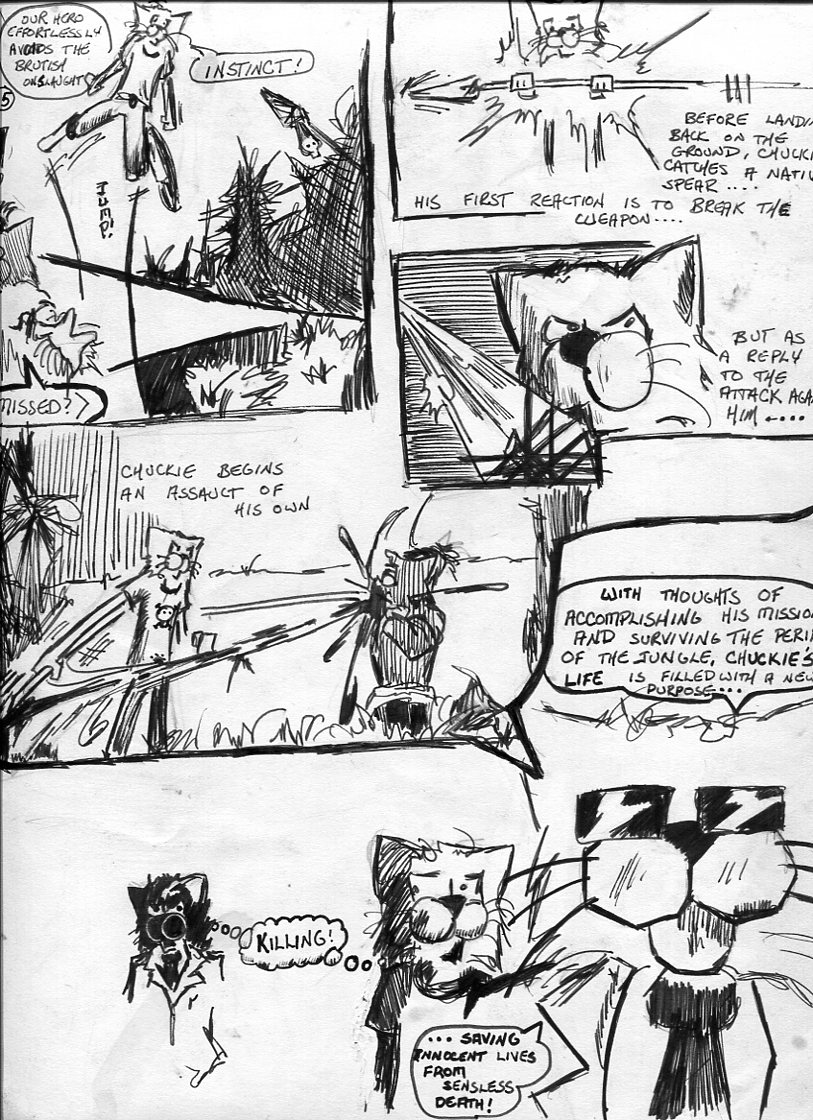 OUR HERO
EFFORTLESSLY
AVOIDS THE
BRUTISH
ONSLAUGHT
INSTINCT!
5
MISSED?
BEFORE LANDIN
BACK ON THE
GROUND, CHUCKI
CATCHES A NATIV
SPEAR....
HIS FIRST REACTION IS TO BREAK THE
WEAPON....
BUT AS
A REPLY
TO THE
ATTACK AGA
HIM ....
CHUCKIE BEGINS
AN ASSAULT OF
HIS OWN
WITH THOUGHTS OF
ACCOMPLISHING HIS MISSION
AND SURVIVING THE PERIL
OF THE JUNGLE, CHUCKIE'S
LIFE IS FILLED WITH A NEW
PURPOSE...
KILLING!
... SAVING
INNOCENT LIVES
FROM
SENSLESS
DEATH!